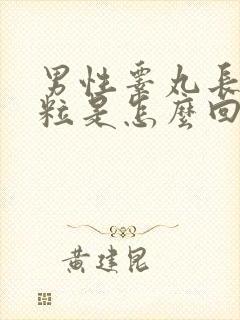 男性睪丸長
粒是怎麼回
黃建昆